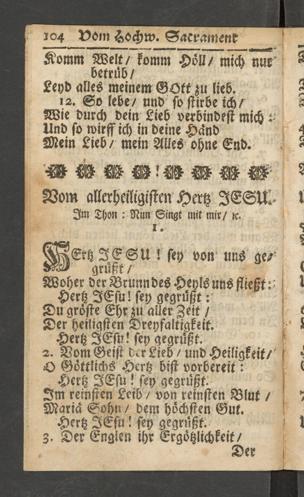 104 Vom Hochw. Sacrament
Komm Welt / komm Höll / mich nur
betrüb /
Leyd alles meinem GOtt zu lieb.
12. So lebe / und so stirbe ich /
Wie durch dein Lieb verbindest mich :
Und so wirff ich in deine Händ
Mein Lieb / mein Alles ohne End.
Vom allerheiligisten Hertz JESU.
Im Thon : Nun Singt mit mir / ꝛc.
1.
HErtz JESU ! sey von uns ge-
grüßt /
Woher der Brunn des Heyls uns fließt :
Hertz JEsu ! sey gegrüßt :
Du gröste Ehr zu aller Zeit /
Der heiligsten Dreyfaltigkeit.
Hertz JEsu ! sey gegrüßt.
2. Vom Geist der Lieb / und Heiligkeit /
O Göttlichs Hertz bist vorbereit :
Hertz JEsu ! sey gegrüßt.
Im reinsten Leib / von reinsten Blut /
Mariä Sohn / dem höchsten Gut.
Hertz JEsu ! sey gegrüßt.
3. Der Englen ihr Ergötzlichkeit /
Der